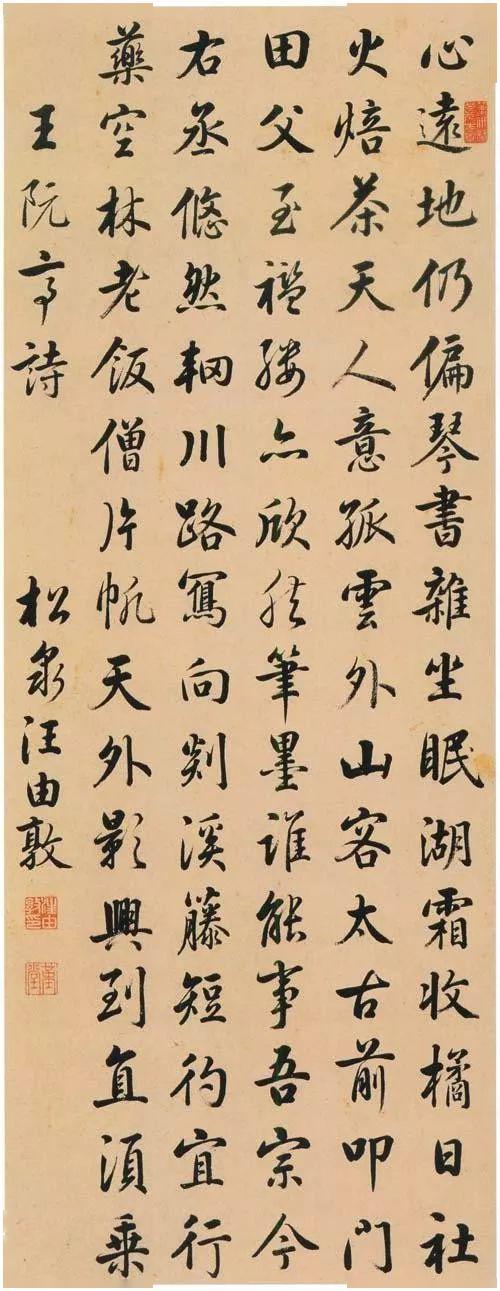 心遠地仍偏琴書雜坐眠湖霜收橘日社
火焙茶天人意孤雲外山容太古前叩門
田父至襤褸亦欣然筆墨誰能事吾宗今
右丞悠然輞川路寫向剡溪藤短彴宜行
藥空林老飯僧片帆天外影興到直須乗
王阮亭詩 松泉汪由敦